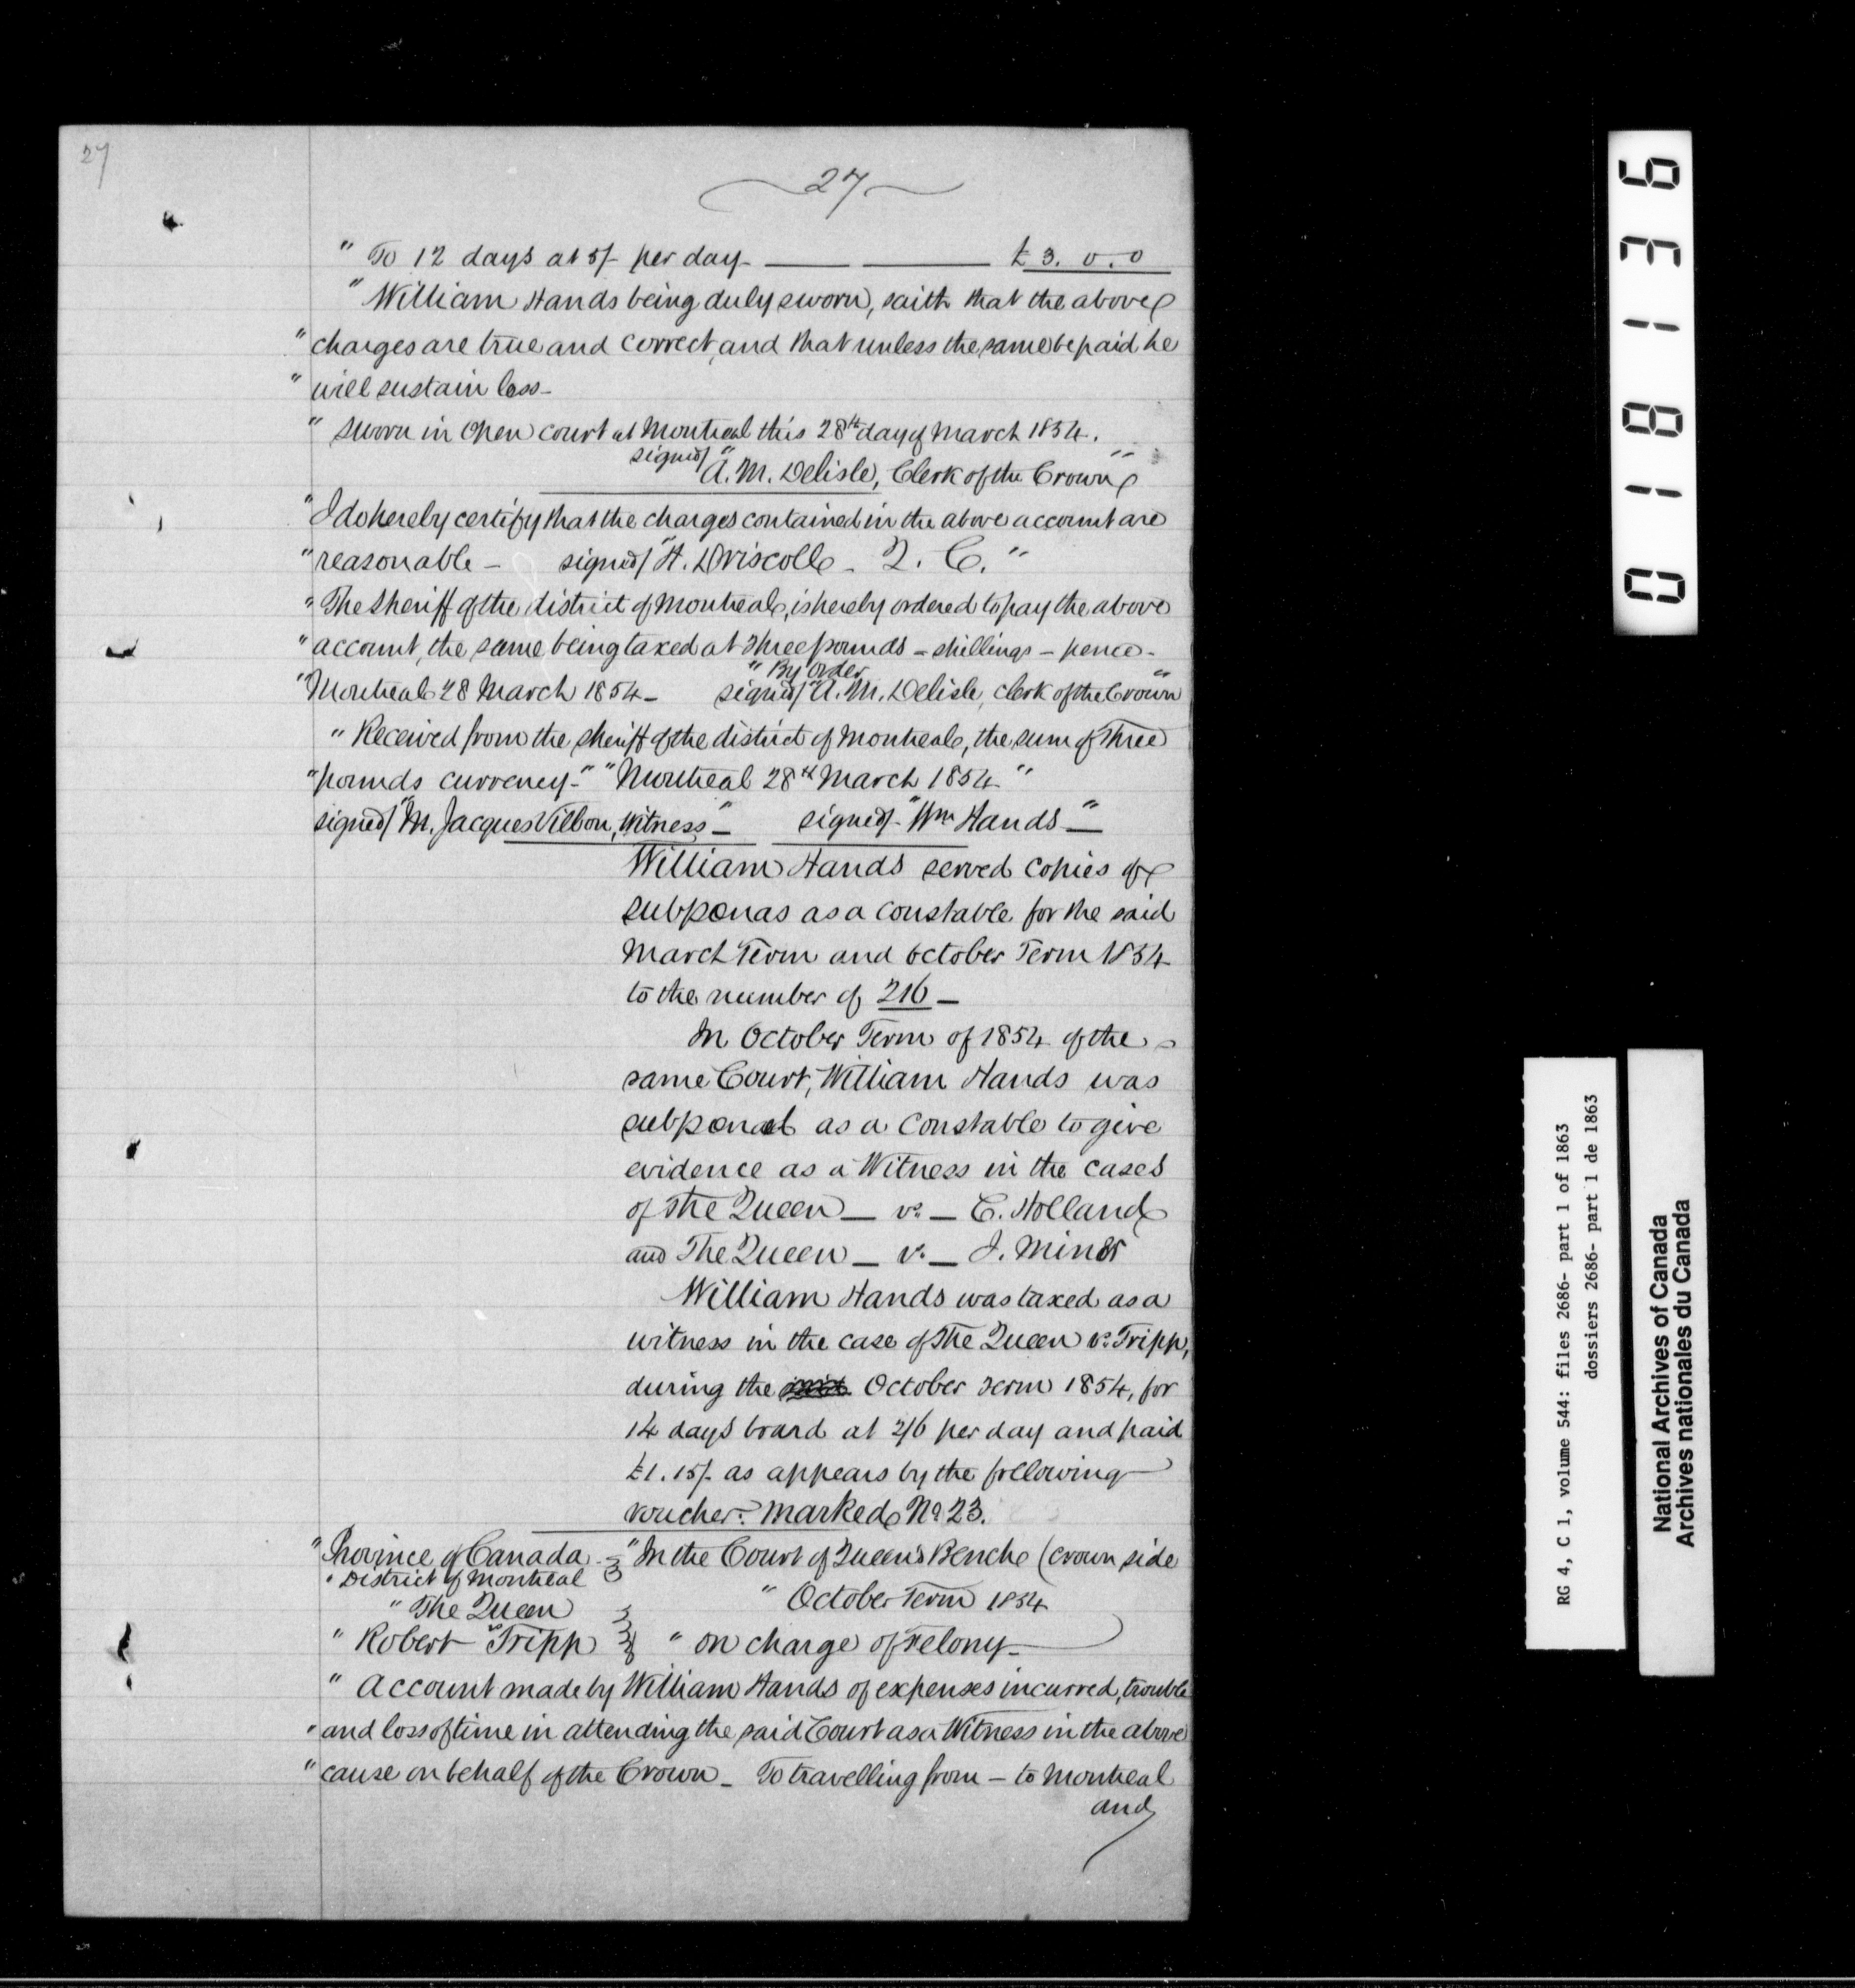 27
27
" To 12 days at 5/- per day £3. 0. 0
" William Hands being duly sworn, saith that the above
" charges are true and correct, and that unless the same be paid he
" will sustain loss-
" sworn in open court at Montreal this 28th day of March 1854.
signed/ "A. M. Delisle, Clerk of the Crown"
"I do hereby certify that the charges contained in the above account are
"reasonable - signed/ "H. Driscoll - Q. C."
"The Sheriff of the district of Montreal, is hereby ordered to pay the above
"account, the same being taxed at Three pounds - shillings - pence -
" By order
"Montreal 28 March 1854 - signed/ "A. M. Delisle, clerk of the Crown"
" Received from the sheriff of the district of Montreal, the sum of Three
"pounds currency -" "Montreal 28th March 1854"
signed/ "M. Jacques Vilbon, Witness" - signed/- "Wm Hands"-
William Hands served copies of
subpœnas as a constable for the said
March Term and October Term 1854
to the number of 216 -
In October Term of 1854 of the
same Court, William Hands was
subpœnaed as a Constable to give
evidence as a Witness in the cases
of The Queen - vs - C. Holland
and The Queen - v. - J. Minor
William Hands was taxed as a
witness in the case of The Queen vs Tripp,
during the October Term 1854, for
14 days board at 2/6 per day and paid
£1. 15/- as appears by the following
voucher: marked No 23.
"Province of Canada - "In the Court of Queen's Bench (crown side
" District of Montreal
" October Term 1854
" The Queen
vs
" Robert Tripp " on charge of Felony -
" Account made by William Hands of expenses incurred, trouble
" and loss of time in attending the said Court as a Witness in the above
" cause on behalf of the Crown - To travelling from - to Montreal
and
018136
RG 4, C 1, volume 544: files 2686- part 1 of 1863
dossiers 2686- part 1 de 1863
National Archives of Canada
Archives nationales du Canada